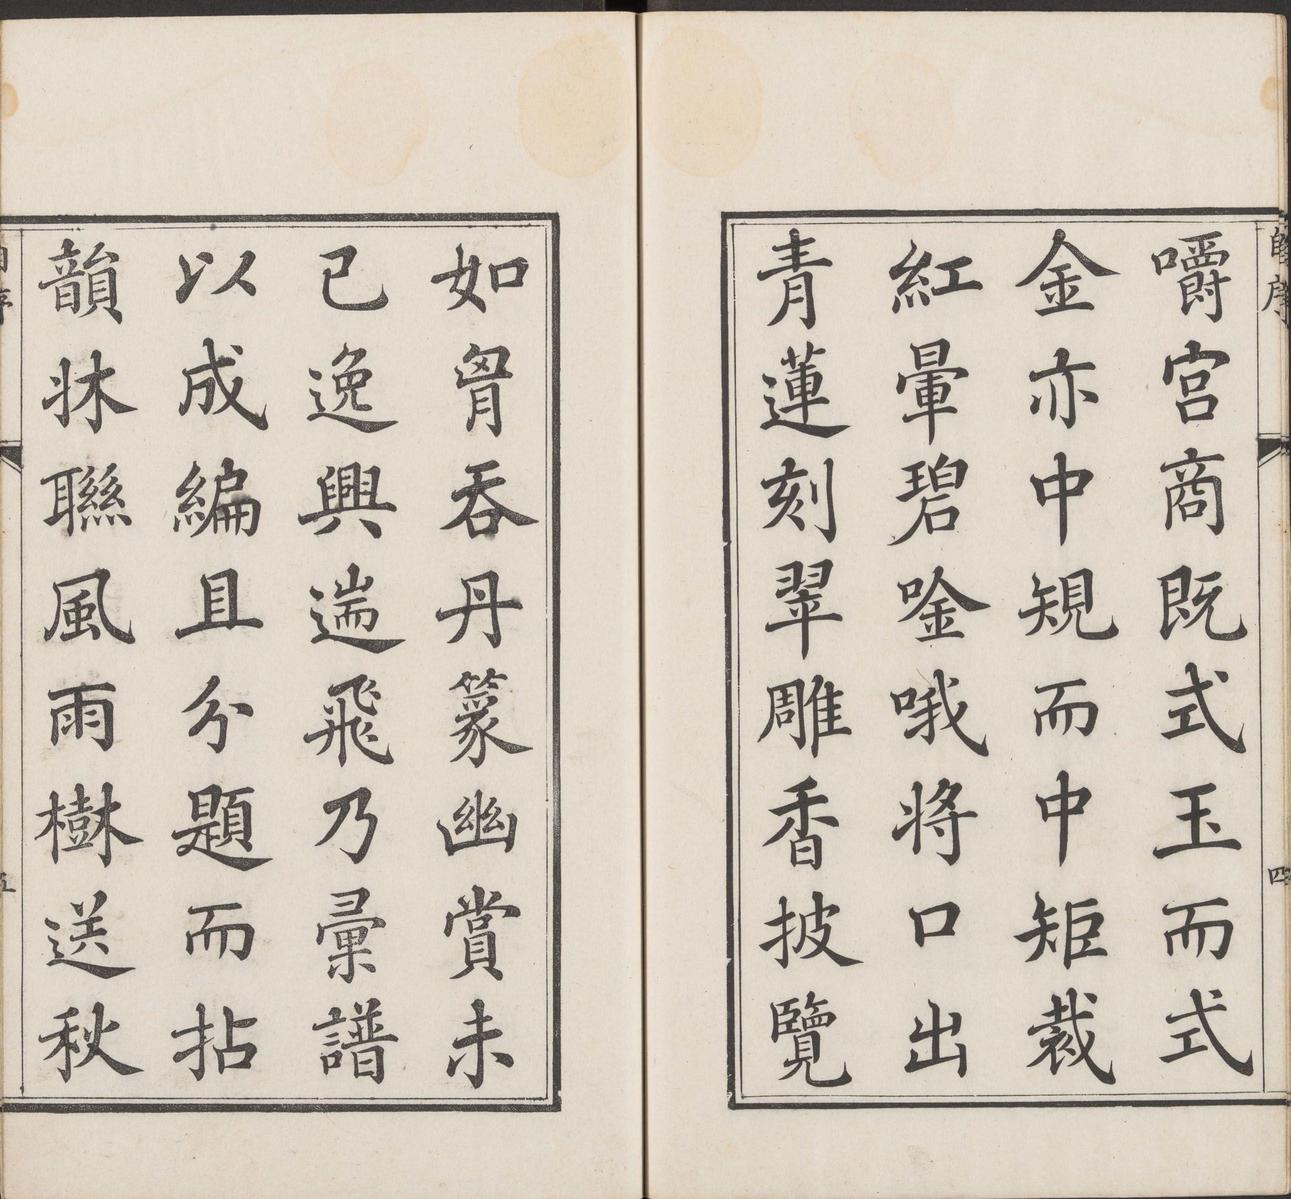 嚼宮商既式玉而式
金亦中規而中矩裁
紅暈碧唫哦将口出
青蓮刻翠雕香披覽
自序
四
如胷吞丹篆幽賞未
已逸興遄飛乃彙譜
以成編且分題而拈
韻牀聯風雨樹送秋
自序
五